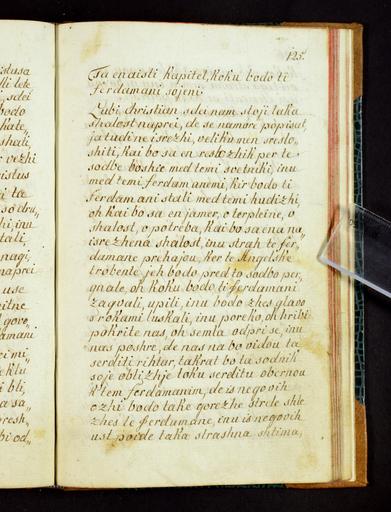 istusa
lli tek
sdei
bodo
hate,
shali,
r vezhi
istus
i ta
so dru,,
hi, inu
tali,
nagi,
naprei
use
bitne
gore,
damani
ei mi,
k tu
i bli,
a sa,,
resh,
bi od,,
125.
Ta enaisti kapitel, koku bodo ti
ferdamani sojeni.
Lubi christian sdei nam stoji taka
shalost naprei, de se namore popisat,
ja tudi ne isrezhi, veliku men sreslo,,
shiti, kai bo sa en reslozhik per te
sodbe boshie med temi svetniki, inu
med temi ferdamanemi, kir bodo ti
ferdamani stali med temi hudizhi,
oh kai bo sa en jamer, o terpleine, o
shalost, o potreba, kai bo sa ena na,,
isrezhena shalost, inu strah te fer,,
damane prehajou, ker te Angelske
trobente jeh bodo pred to sodbo per,,
gnale, oh koku bodo ti ferdamani
zagvali, upili, inu bodo zhes glavo
s'rokami luskali, inu poreko, oh hribi
pokrite nas, oh semla odpri se, inu
nas poshre, de nas na bo vidou ta
serditi rihtar, takrat bo ta sodnik
soje oblizhje toku serditu obernou
k'tem ferdamanim, de is negovih
ozhi bodo take gorezhe strele shle
zhes te ferdamane, inu is negovih
ust poide taka strashna shtima,